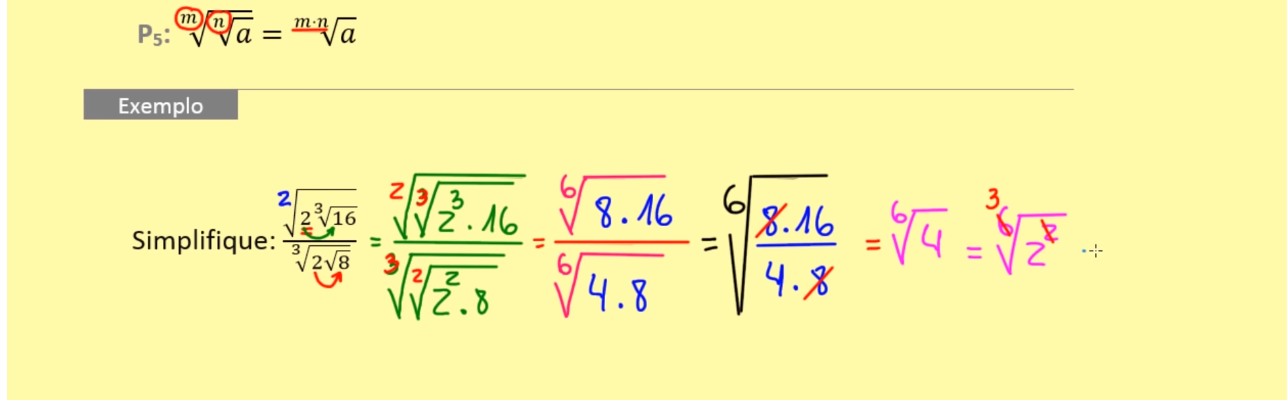 P₅: ᵐ√(ⁿ√a) = ᵐ·ⁿ√a
Exemplo
Simplifique: ²√(2³√16) / ³√(2√8) = ²√(³√(2³.16)) / ³√(²√(2².8)) = ⁶√(8.16) / ⁶√(4.8) = ⁶√((8.16)/(4.8)) = ⁶√4 = ³ ⁶√(2²)